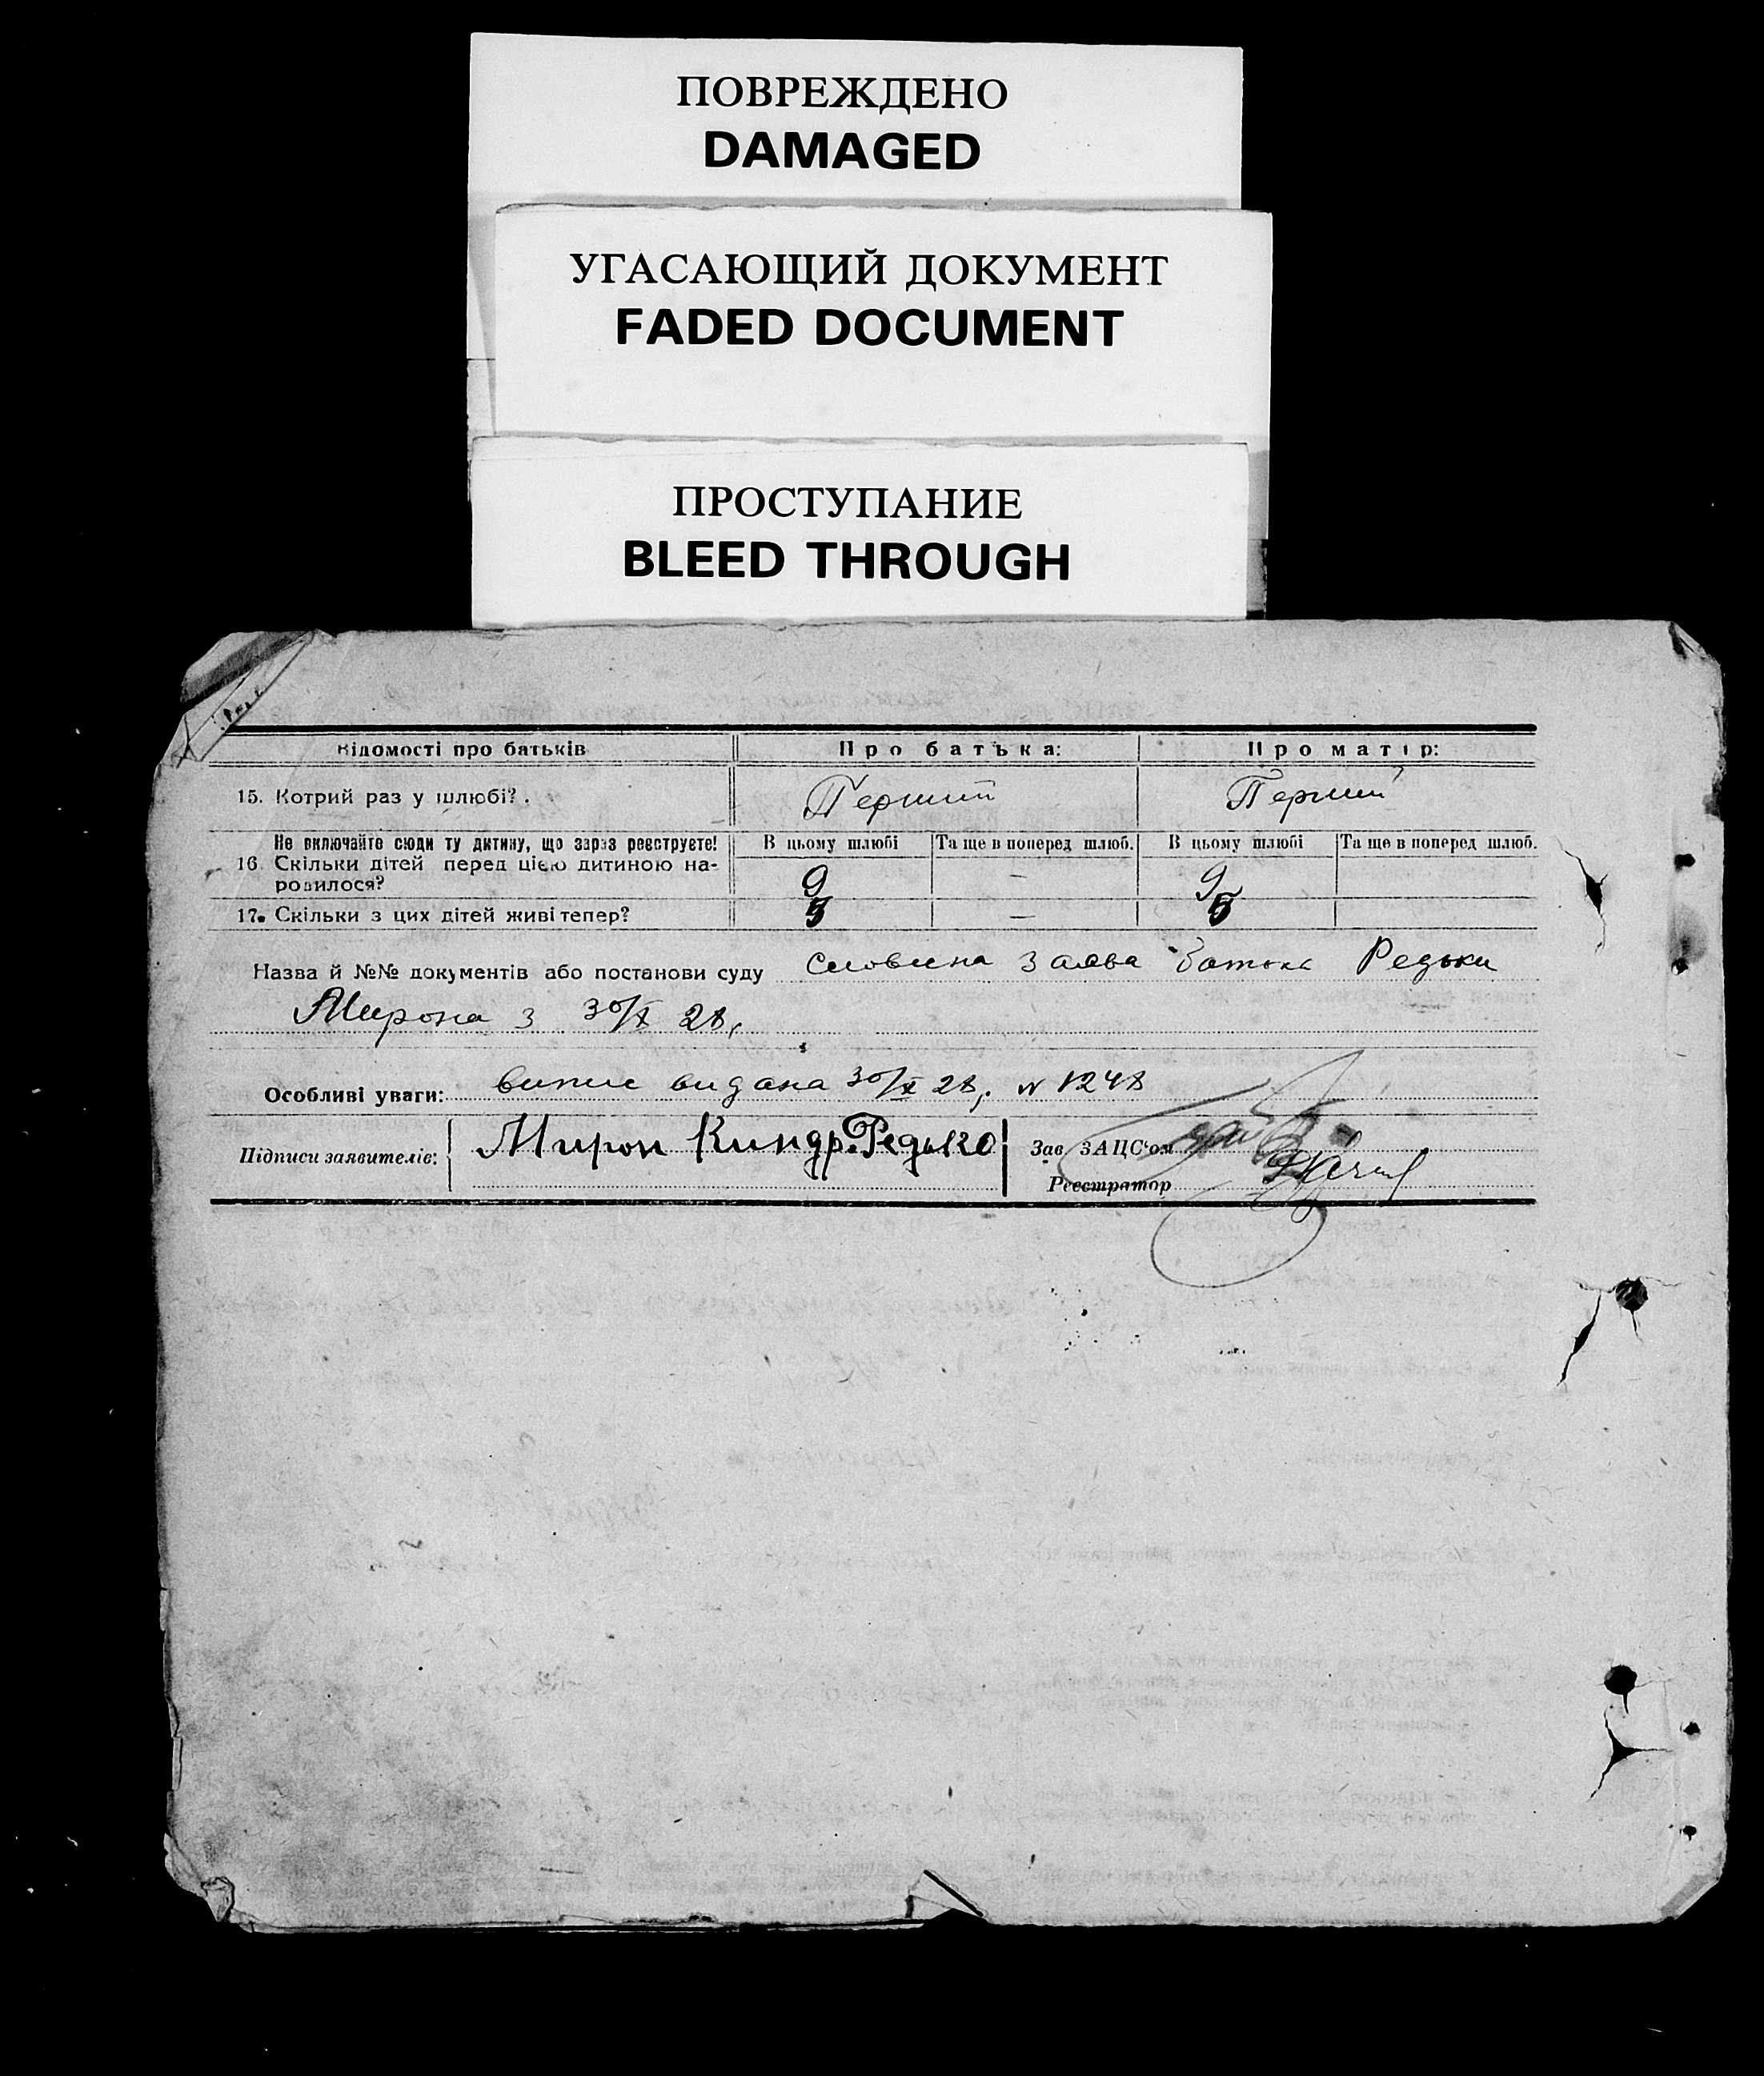 ПОВРЕЖДЕНО
DAMAGED
УГАСАЮЩИЙ ДОКУМЕНТ
FADED DOCUMENT
ПРОСТУПАНИЕ
BLEED THROUGH
Відомості про батьків Про батька: Про матір:
15. Котрий раз у шлюбі? . Перший Перший
Не включайте сюди ту дитину, що зараз реєструєте! В цьому шлюбі Та ще в поперед шлюб. В цьому шлюбі Та ще в поперед шлюб.
16. Скільки дітей перед цією дитиною на-
родилося? 9 — 9
17. Скільки з цих дітей живі тепер? 5 — 5
Назва й №№ документів або постанови суду Словесна заява батька Редьки
Мирона з 30/X 28,
Особливі уваги: випис видана 30/X 28, № 1248
Підписи заявителів: Мирон Киндр. Редько Зав. ЗАЦС'ом
Реєстратор